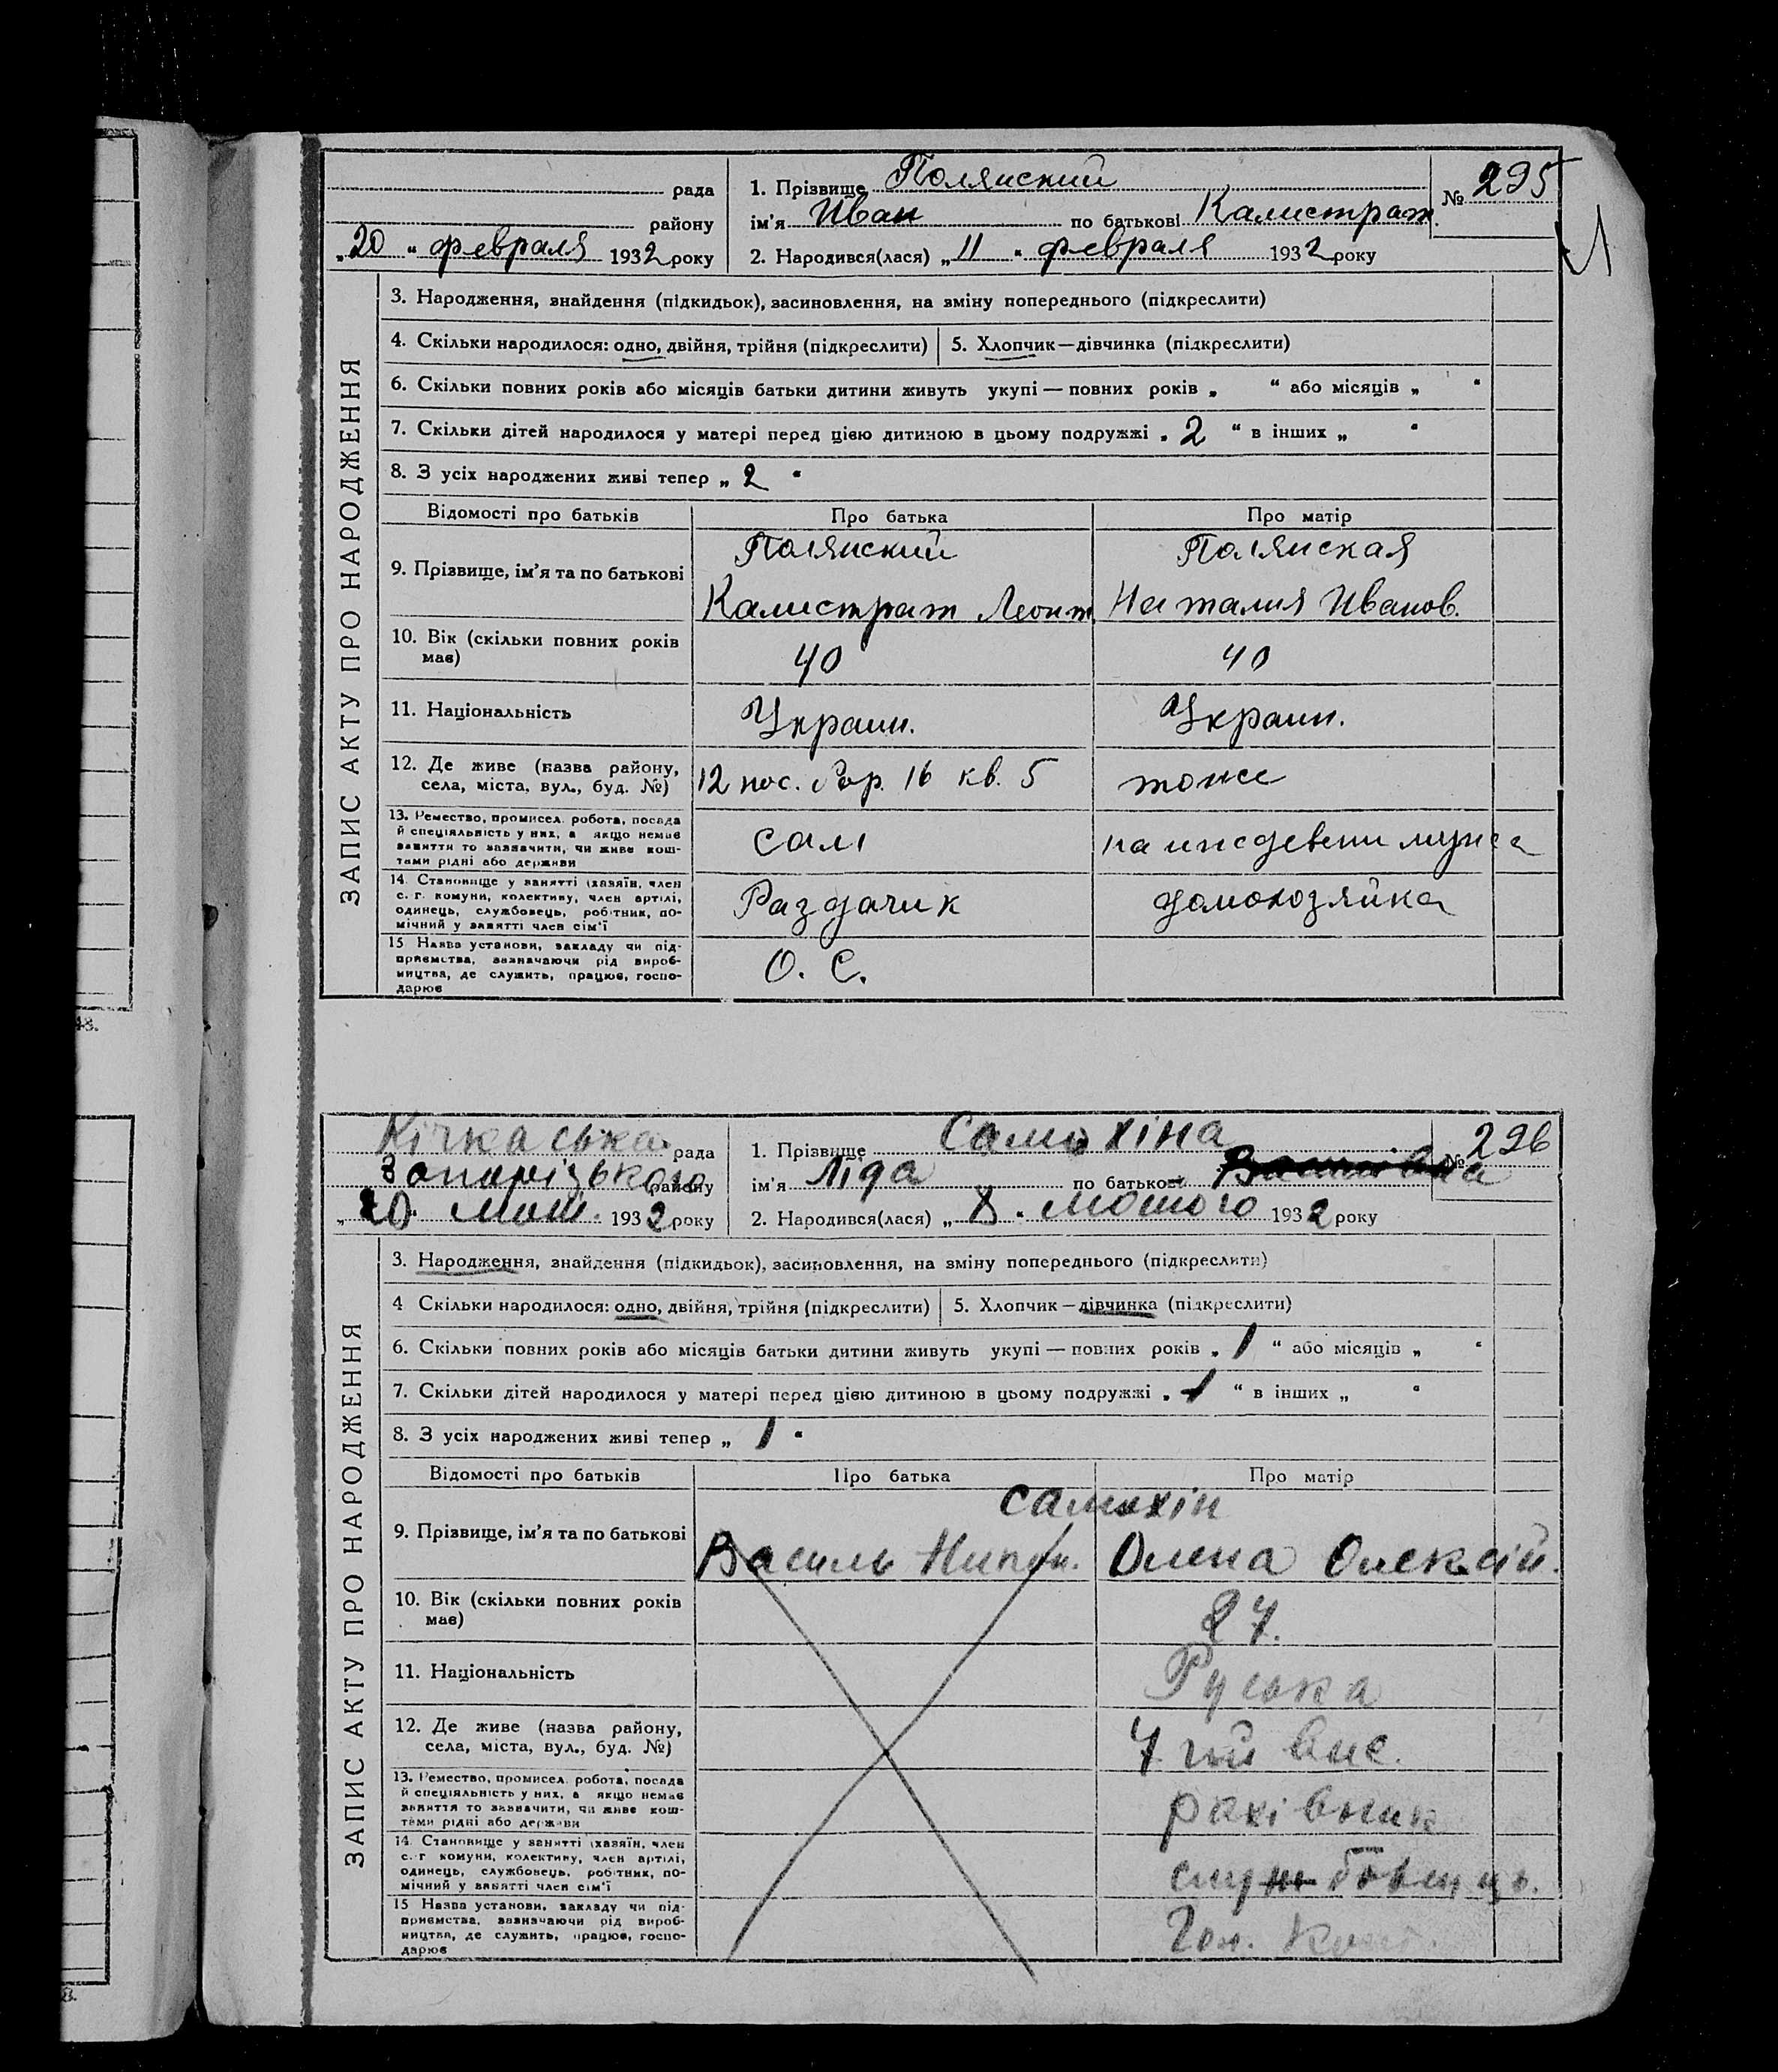 рада
району
„20“ февраля 1932 року
1. Прізвище Полянский
ім'я Иван по батькові Калистрат.
2. Народився(лася) „11“ февраля 1932 року
№ 295
ЗАПИС АКТУ ПРО НАРОДЖЕННЯ
3. Народження, знайдення (підкидьок), засиновлення, на зміну попереднього (підкреслити)
4. Скільки народилося: одно, двійня, трійня (підкреслити) 5. Хлопчик—дівчинка (підкреслити)
6. Скільки повних років або місяців батьки дитини живуть укупі — повних років „ “ або місяців „ “
7. Скільки дітей народилося у матері перед цією дитиною в цьому подружжі „2“ в інших „ “
8. З усіх народжених живі тепер „2“
Відомості про батьків Про батька Про матір
9. Прізвище, ім'я та по батькові
Полянский Полянская
Калистрат Леонт. Наталия Иванов.
10. Вік (скільки повних років має) 40 40
11. Національність Украин. Украин.
12. Де живе (назва району, села, міста, вул., буд. №) 12 пос. 16 кв. 5 тоже
13. Ремество, промисел, робота, посада
й спеціяльність у них, а якщо немає
заняття то зазначити, чи живе кош-
тами рідні або держави
сам на иждевени мужа
14. Становище у занятті (хазяїн, член
с. г. комуни, колективу, член артілі,
одинець, службовець, робітник, по-
мічний у занятті член сім'ї
Раздачик домохозяйка
15 Назва установи, закладу чи під-
приємства, зазначаючи рід вироб-
ництва, де служить, працює, госпо-
дарює
О. С.
48.
Кічкаська рада
Запорізького району
„20“ Лют. 1932 року
1. Прізвище Самохіна
ім'я Ліда по батькові
2. Народився(лася) „8“ Лютого 1932 року
№ 296
ЗАПИС АКТУ ПРО НАРОДЖЕННЯ
3. Народження, знайдення (підкидьок), засиновлення, на зміну попереднього (підкреслити)
4 Скільки народилося: одно, двійня, трійня (підкреслити) 5. Хлопчик—дівчинка (підкреслити)
6. Скільки повних років або місяців батьки дитини живуть укупі — повних років „1“ або місяців „ “
7. Скільки дітей народилося у матері перед цією дитиною в цьому подружжі „1“ в інших „ “
8. З усіх народжених живі тепер „1“
Відомості про батьків Про батька Про матір
9. Прізвище, ім'я та по батькові
Самохін
Василь Олена Олексій.
10. Вік (скільки повних років має) 27.
11. Національність Руська
12. Де живе (назва району, села, міста, вул., буд. №) 7 вис.
13. Ремество, промисел, робота, посада
й спеціяльність у них, а якщо немає
заняття то зазначити, чи живе кош-
тами рідні або держави
рахівник
14. Становище у занятті (хазяїн, член
с. г. комуни, колективу, член артілі,
одинець, службовець, робітник, по-
мічний у занятті член сім'ї
службовець.
15 Назва установи, закладу чи під-
приємства, зазначаючи рід вироб-
ництва, де служить, працює, госпо-
дарює